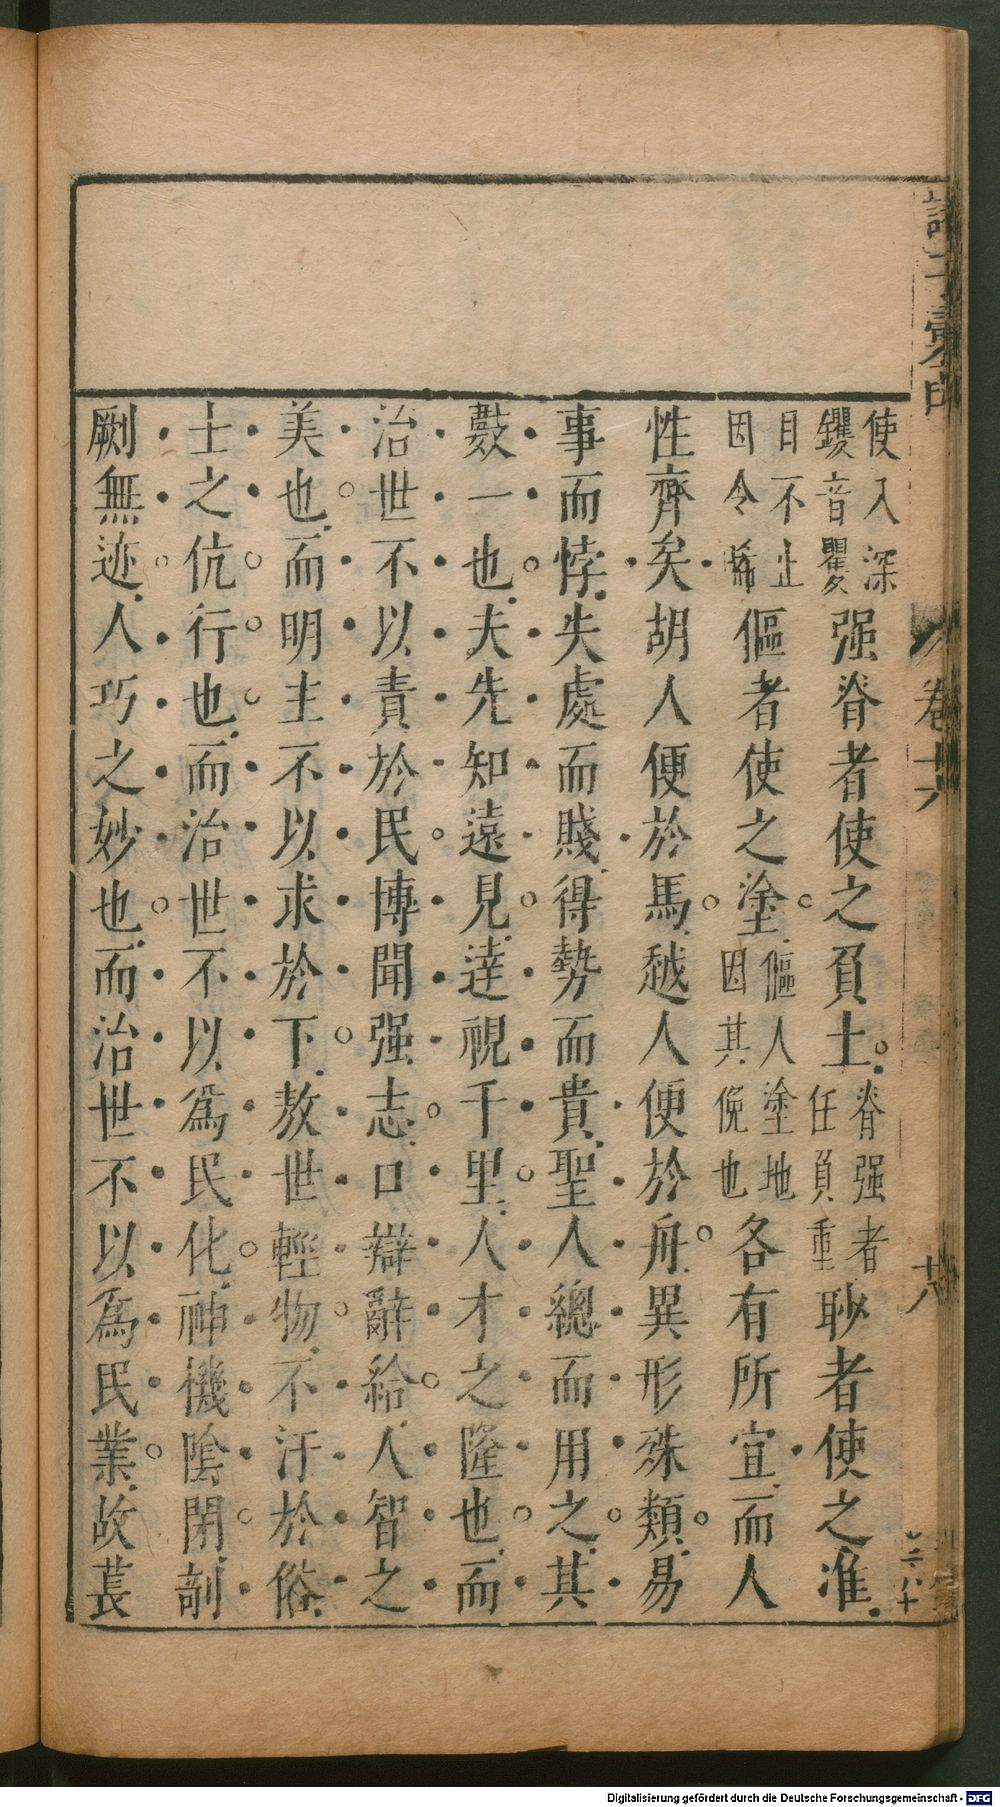 使入深钁音瞿强脊者使之負土脊强者任負重眇者使之准
目不止因令睎傴者使之塗傴人塗地因其俛也各有所宜而人
性齊矣胡人便於馬越人便於舟異形殊類易
事而悖失處而賤得勢而貴聖人總而用之其
數一也夫先知遠見達視千里人才之隆也而
治世不以責於民博聞强志口辯辭給人智之
美也而明主不以求於下敖世輕物不汙於俗
士之伉行也而治世不以爲民化神機陰閉剞
劂無迹人巧之妙也而治世不以爲民業故萇
卷十六
十八
Digitalisierung gefördert durch die Deutsche Forschungsgemeinschaft - DFG